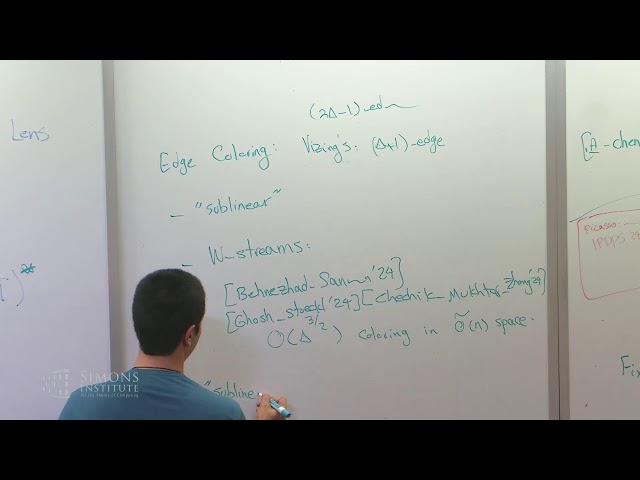 Lens
(2Δ-1)-ed
Edge Coloring: Vizing's: (Δ+1)-edge
- "sublinear"
- W-streams:
[Behnezhad_Saneei'24]
[Ghosh_Stoeckl'24][Chechik_Mukhtar_Zhang'24]
O(Δ^3/2) coloring in Õ(n) space.
"subline
[A-chen
Picasso:
IPDPS 24
Fix
SIMONS
INSTITUTE
for the Theory of Computing